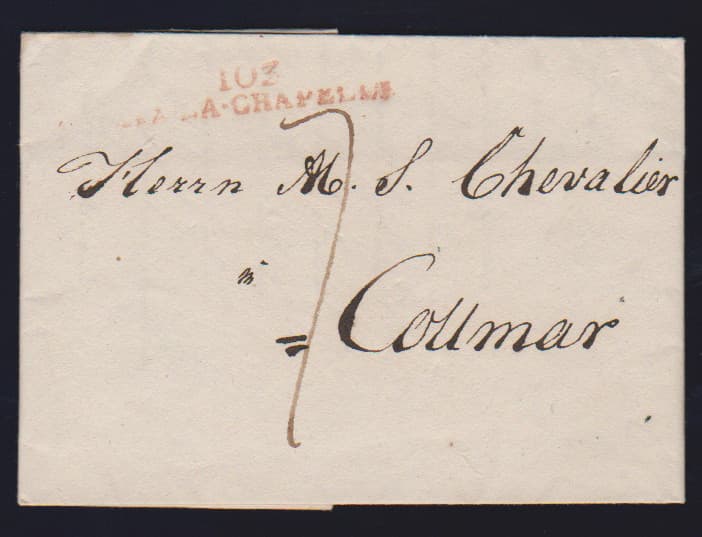 103
LA-CHAPELLE
7
Herrn M. S. Chevalier
in
= Collmar